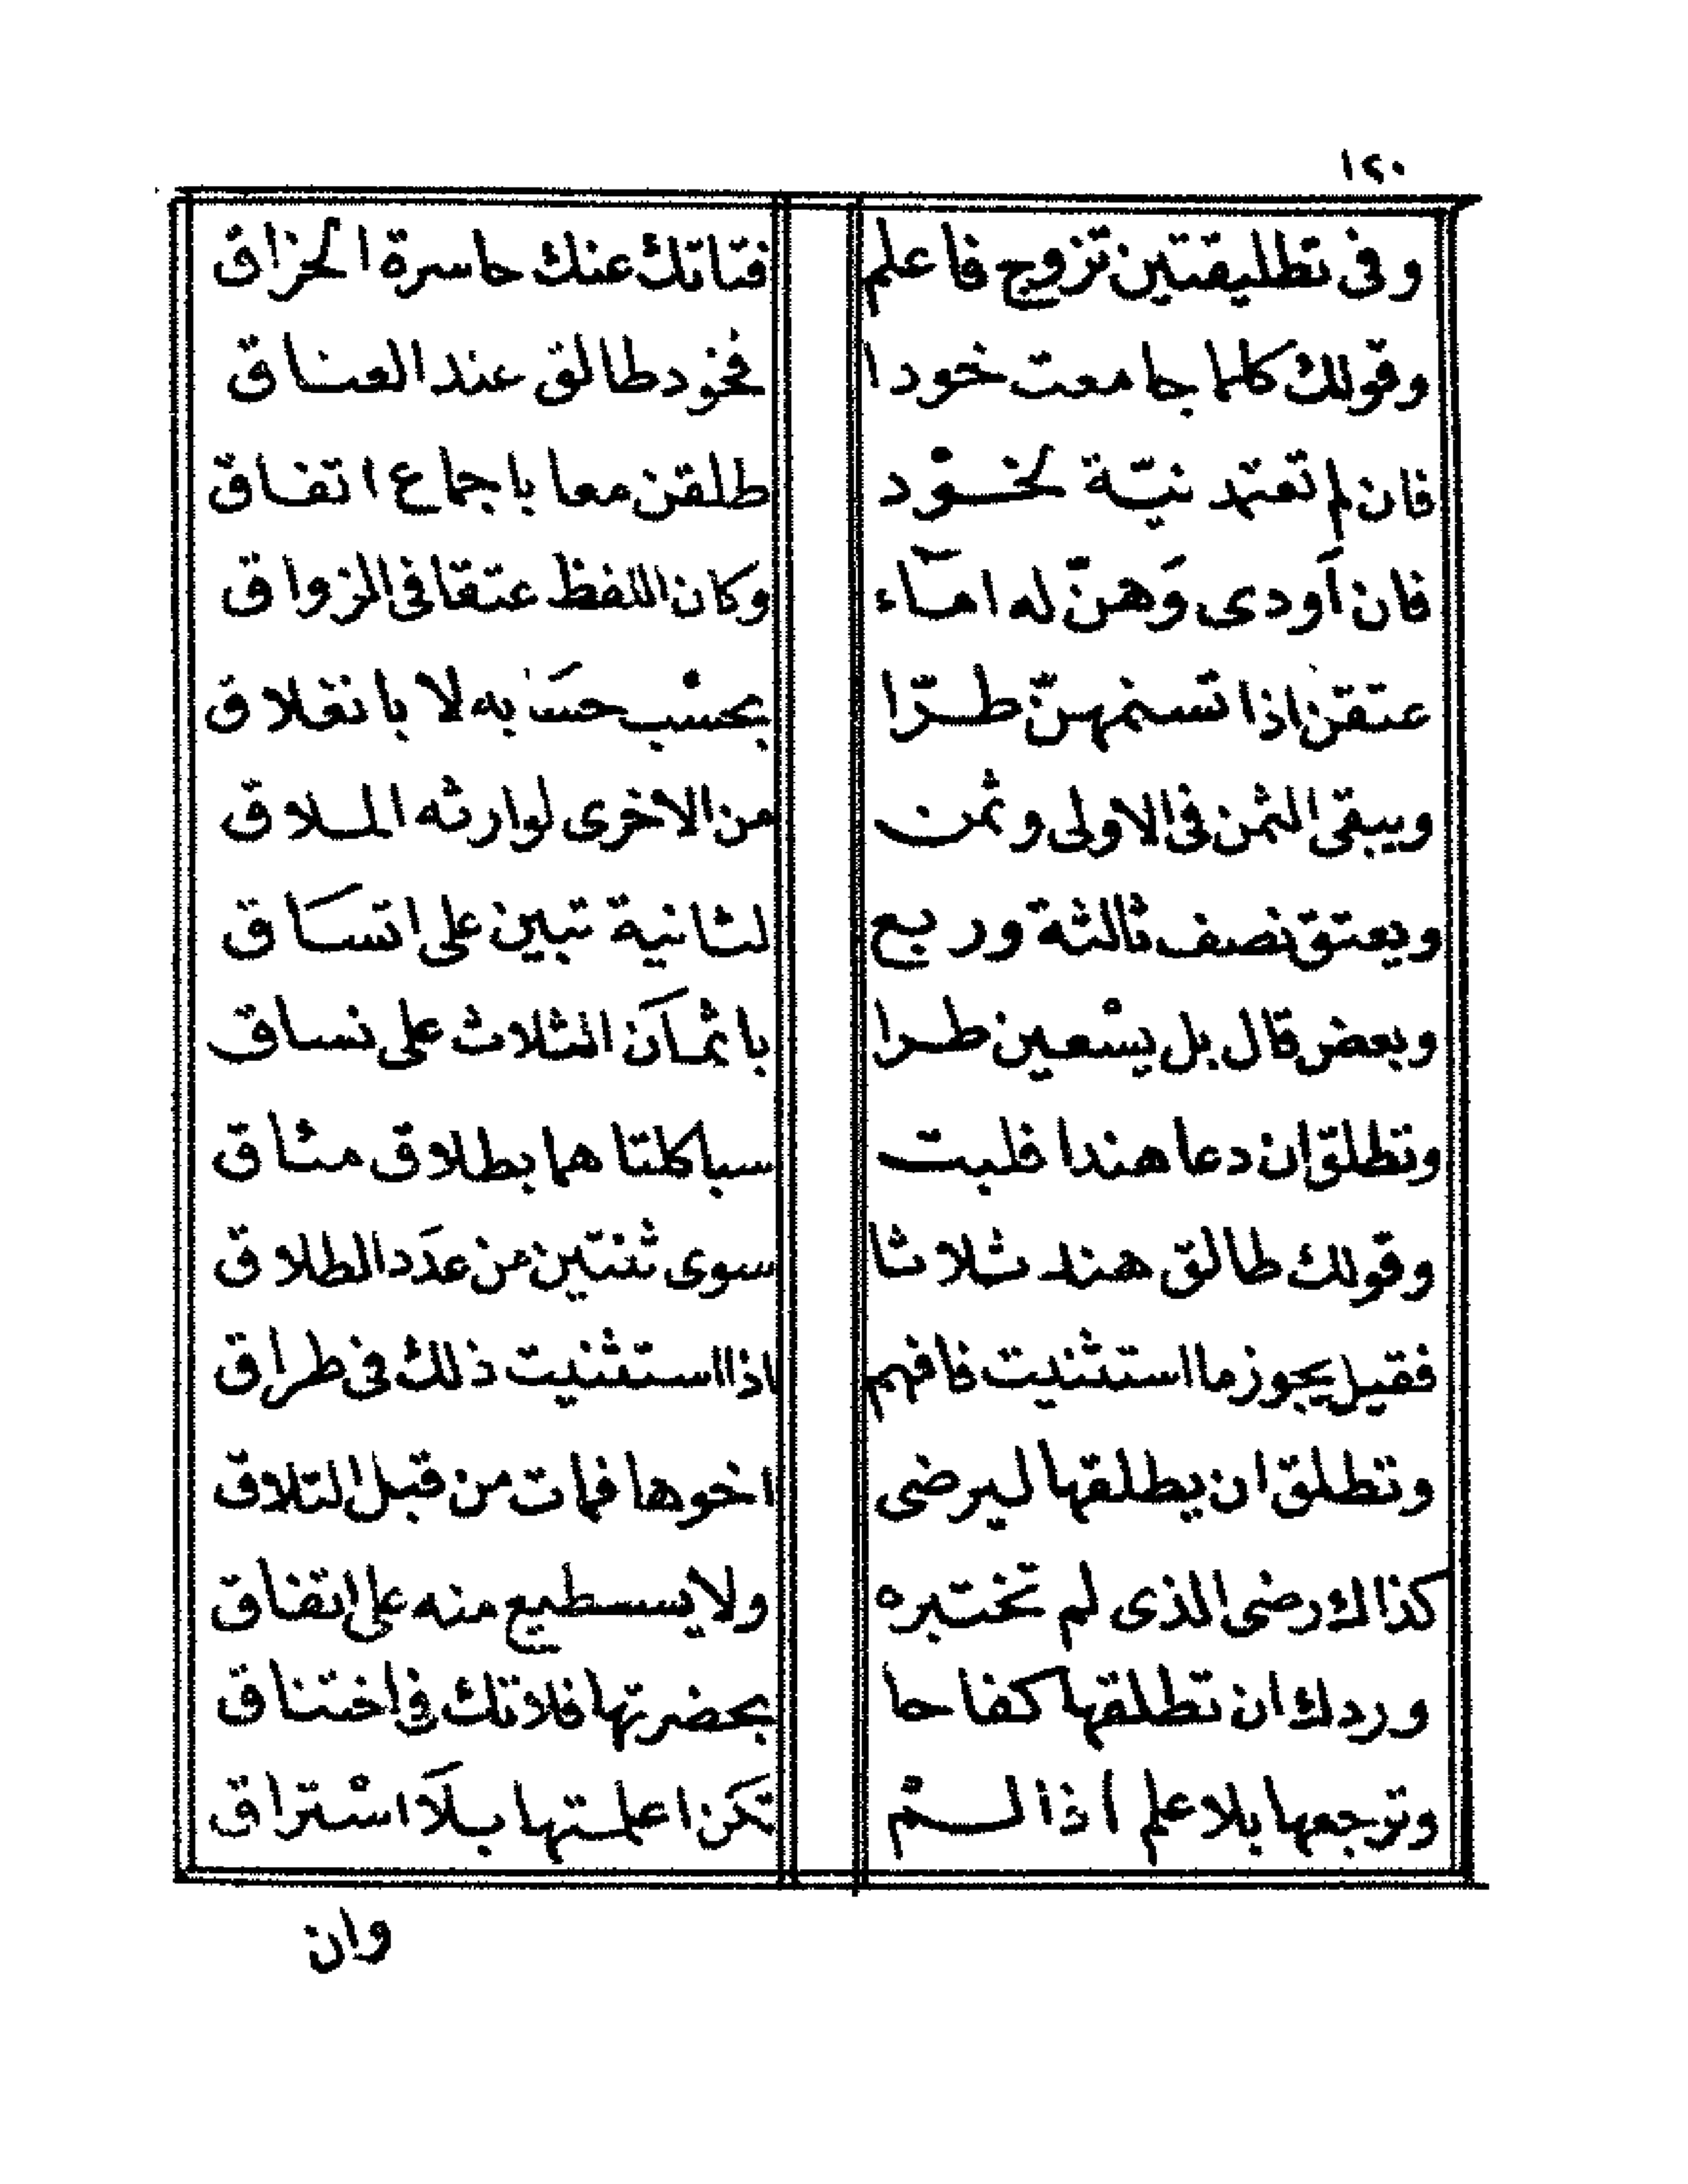 ١٢٠
وفى تطليقتين تزوج فاعلم فتاتك عنك حاسرة الحزاق
وقولك كلما جامعت خودا فخود طالق عند العناق
فان لم تعتمد نيّة لخوْد طلقن معا باجماع اتفاق
فان اَودى وَهنّ له امآء وكان اللفظ عتقا فى الزواق
عتقن اذا تسنمهنّ طرّا بحسْب حسَابه لا بانغلاق
ويبقى الثمن فى الاولى وثمن من الاخرى لوارثه الملاق
ويعتق نصف ثالثة وربع لثانية تبين على اتسَاق
وبعض قال بل يسْعين طرا باثمَان الثلاث على نساق
وتطلق ان دعا هندا فلبت سبا كلتا هما بطلاق مثاق
وقولك طالق هند ثلاثا سوى ثنتين من عدَد الطلاق
فقيل يجوز ما استثنيت فافهم اذا استثنيت ذلك فى طراق
وتطلق ان يطلقها ليرضى اخوها فمات من قبل التلاق
كذاك رضى الذى لم تختبره ولا يسطيع منه على اتفاق
وردك ان تطلقها كفاحا بحضرتها فلاتك فى اختناق
وترجعها بلا علم اذا لمْ تكن اعلمتها بلَا اسْتراق
وان